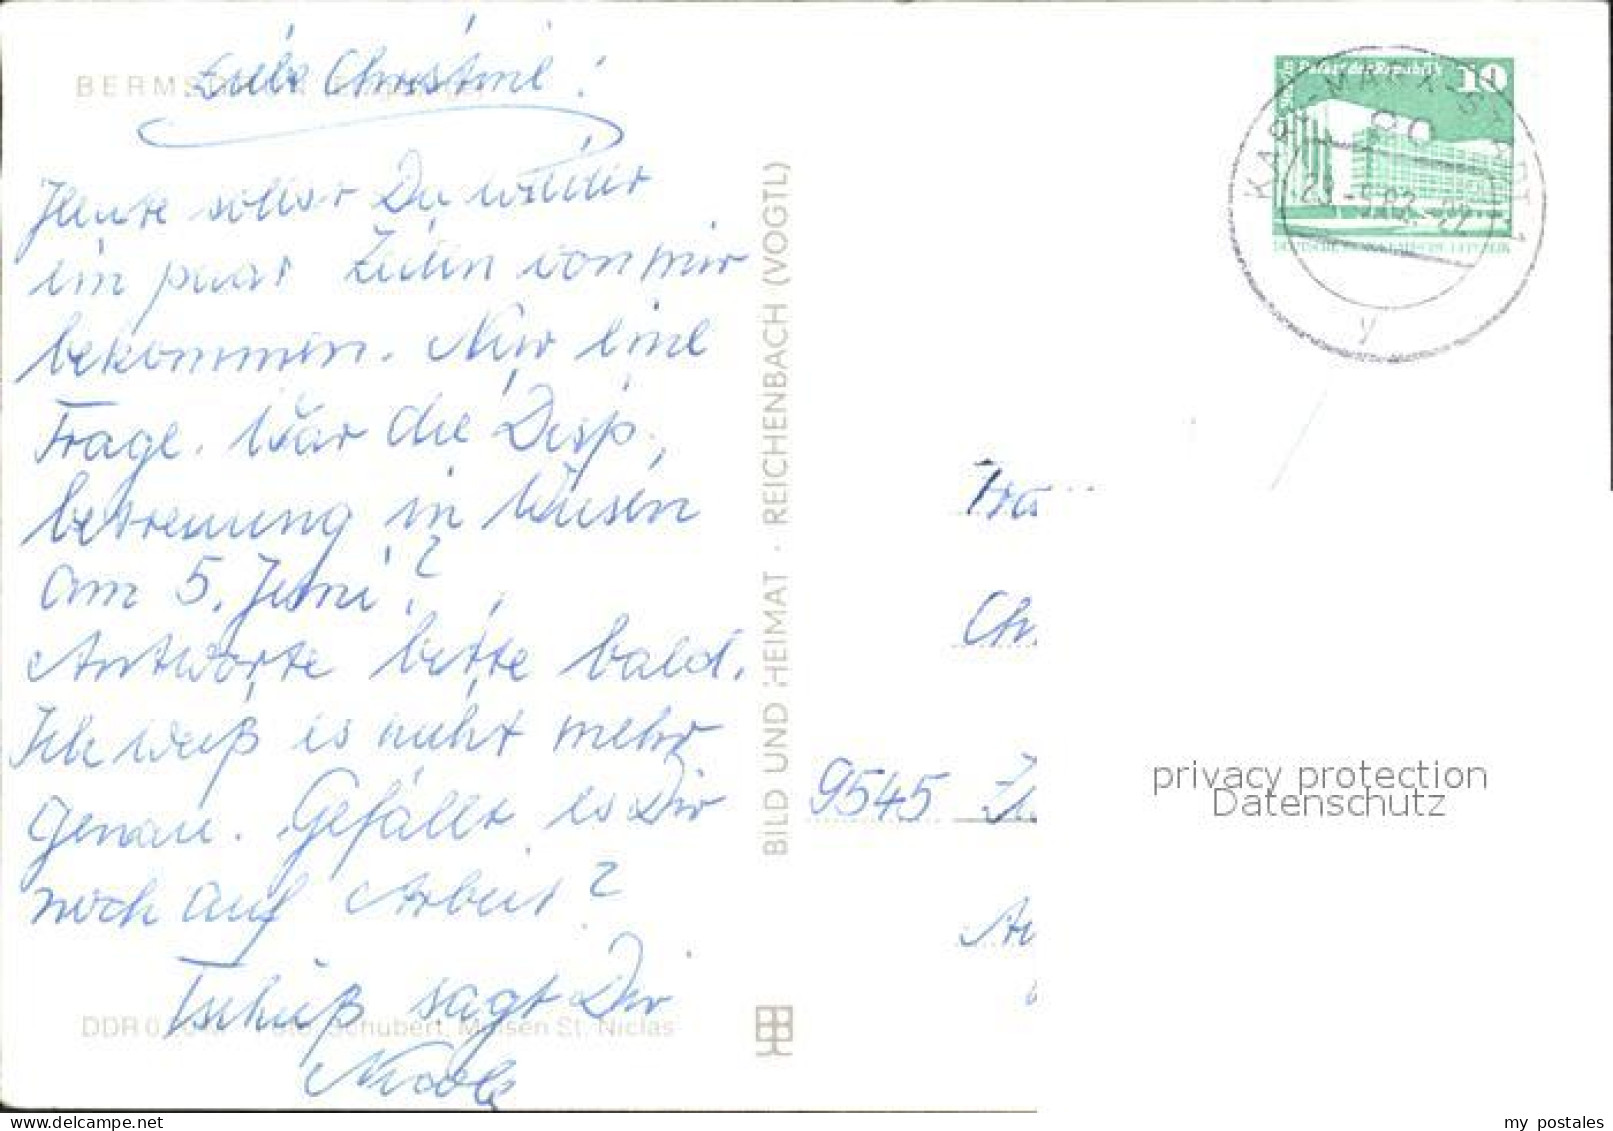 BERMSGRÜN
Liebe Christine!
Heute sollst Du wieder
ein paar Zeilen von mir
bekommen. Nur eine
Frage. War die Disp.
betreuung in Wiesen
am 5. Juni?
Antworte bitte bald.
Ich weiß es nicht mehr
genau. Gefällt es Dir
noch auf Arbeit?
Tschüß sagt Dir
Nicole
DDR Foto: Schubert, Mülsen St. Niclas
BILD UND HEIMAT · REICHENBACH (VOGTL)
Palast der Republik 10
KARL-MARX-STADT 1
90
23.-5.83.-22
y
Frau
Ch
9545
privacy protection
Datenschutz
www.delcampe.net
my postales